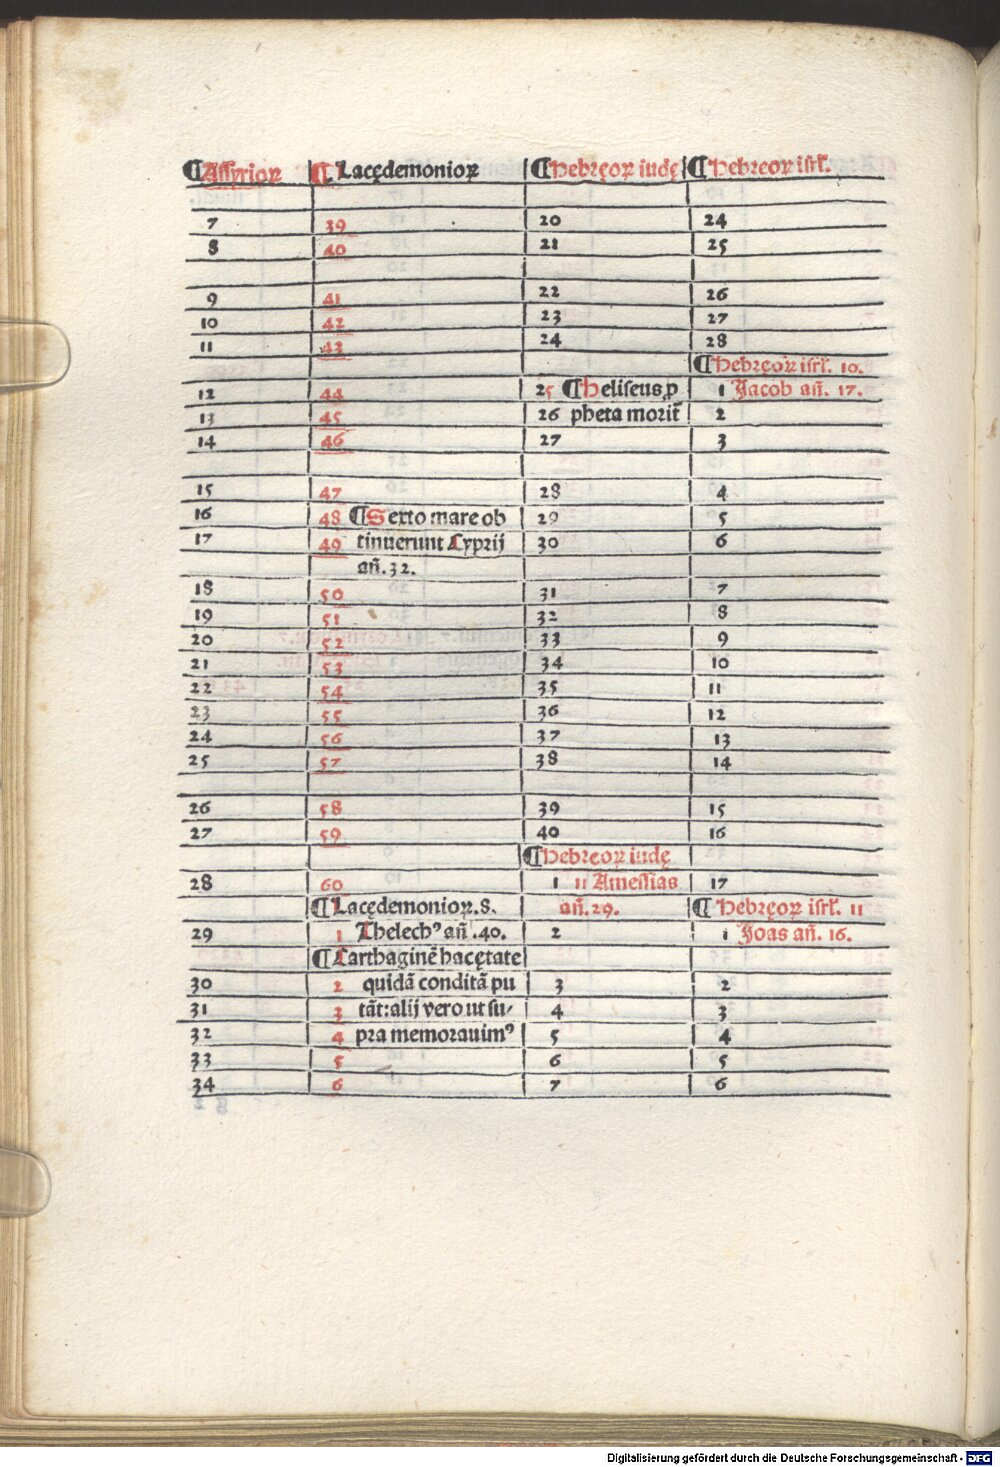 ¶Assyrioꝝ ¶Lacędemonioꝝ ¶Hebręoꝝ iudę ¶Hebreoꝝ isrł.
7 39 20 24
8 40 21 25
9 41 22 26
10 42 23 27
11 43 24 28
¶Hebręoꝝ isrł. 10.
12 44 25 ¶Heliseus ꝓ 1 Jacob añ. 17.
13 45 26 pheta morit̃ 2
14 46 27 3
15 47 28 4
16 48 ¶Sexto mare ob 29 5
17 49 tinuerunt Cyprij 30 6
añ. 32.
18 50 31 7
19 51 32 8
20 52 33 9
21 53 34 10
22 54 35 11
23 55 36 12
24 56 37 13
25 57 38 14
26 58 39 15
27 59 40 16
¶Hebręoꝝ iudę
28 60 1 11 Amessias 17
¶Lacędemonioꝝ. 8. añ. 29. ¶Hebręoꝝ isrł. 11
29 1 Thelechꝰ añ. 40. 2 1 Joas añ. 16.
¶Carthaginẽ hac ętate
30 2 quidã conditã pu 3 2
31 3 tãt: alij vero ut su- 4 3
32 4 pra memorauimꝰ 5 4
33 5 6 5
34 6 7 6
Digitalisierung gefördert durch die Deutsche Forschungsgemeinschaft - DFG